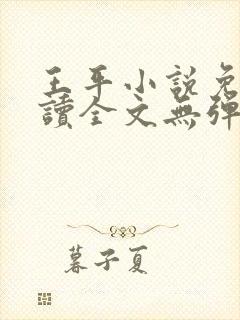 王平小說免
讀全文無彈
暮子夏